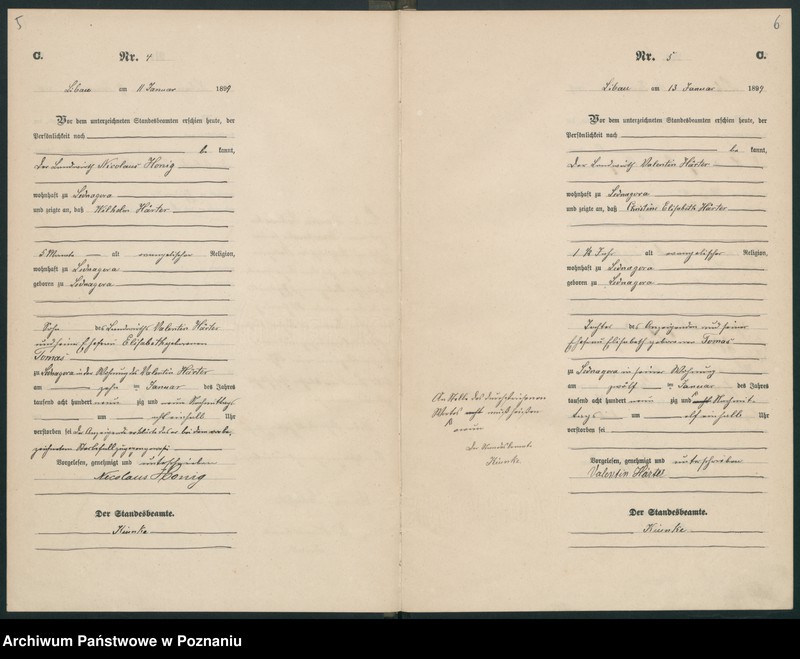 5
C.
Nr. 4
Libau am 11 Januar 1899
Vor dem unterzeichneten Standesbeamten erschien heute, der
Persönlichkeit nach
be kannt,
der Landwirth Nicolaus Honig
wohnhaft zu Lednagora
und zeigte an, daß Wilhelm Härter
5 Monate alt evangelischer Religion,
wohnhaft zu Lednagora
geboren zu Lednagora
Sohn des Landwirths Valentin Härter
und seiner Ehefrau Elisabeth geborenen
Tomas
zu Lednagora in der Wohnung des Valentin Härter
am zehn ten Januar des Jahres
tausend acht hundert neun zig und neun Nachmittags
um acht einhalb Uhr
verstorben sei der Anzeigende erklärt daß er bei dem vorbe
zeichneten Sterbefall zugegen gewesen
Vorgelesen, genehmigt und unterschrieben
Nicolaus Honig
Der Standesbeamte.
Kiunke
6
Nr. 5
C.
Libau am 13 Januar 1899
Vor dem unterzeichneten Standesbeamten erschien heute, der
Persönlichkeit nach
be kannt,
der Landwirth Valentin Härter
wohnhaft zu Lednagora
und zeigte an, daß Christine Elisabeth Härter
1 ½ Jahr alt evangelischer Religion,
wohnhaft zu Lednagora
geboren zu Lednagora
Tochter des Anzeigenden und seiner
Ehefrau Elisabeth geborenen Tomas
zu Lednagora in seiner Wohnung
am zwölf ten Januar des Jahres
tausend acht hundert neun zig und acht Nachmit-
tags um elf einhalb Uhr
verstorben sei
Vorgelesen, genehmigt und unterschrieben
Valentin Härter
Der Standesbeamte.
Kiunke
An Stelle des durchstrichenen
Wortes acht muß heißen
neun
Der Standesbeamte
Kiunke.
Archiwum Państwowe w Poznaniu